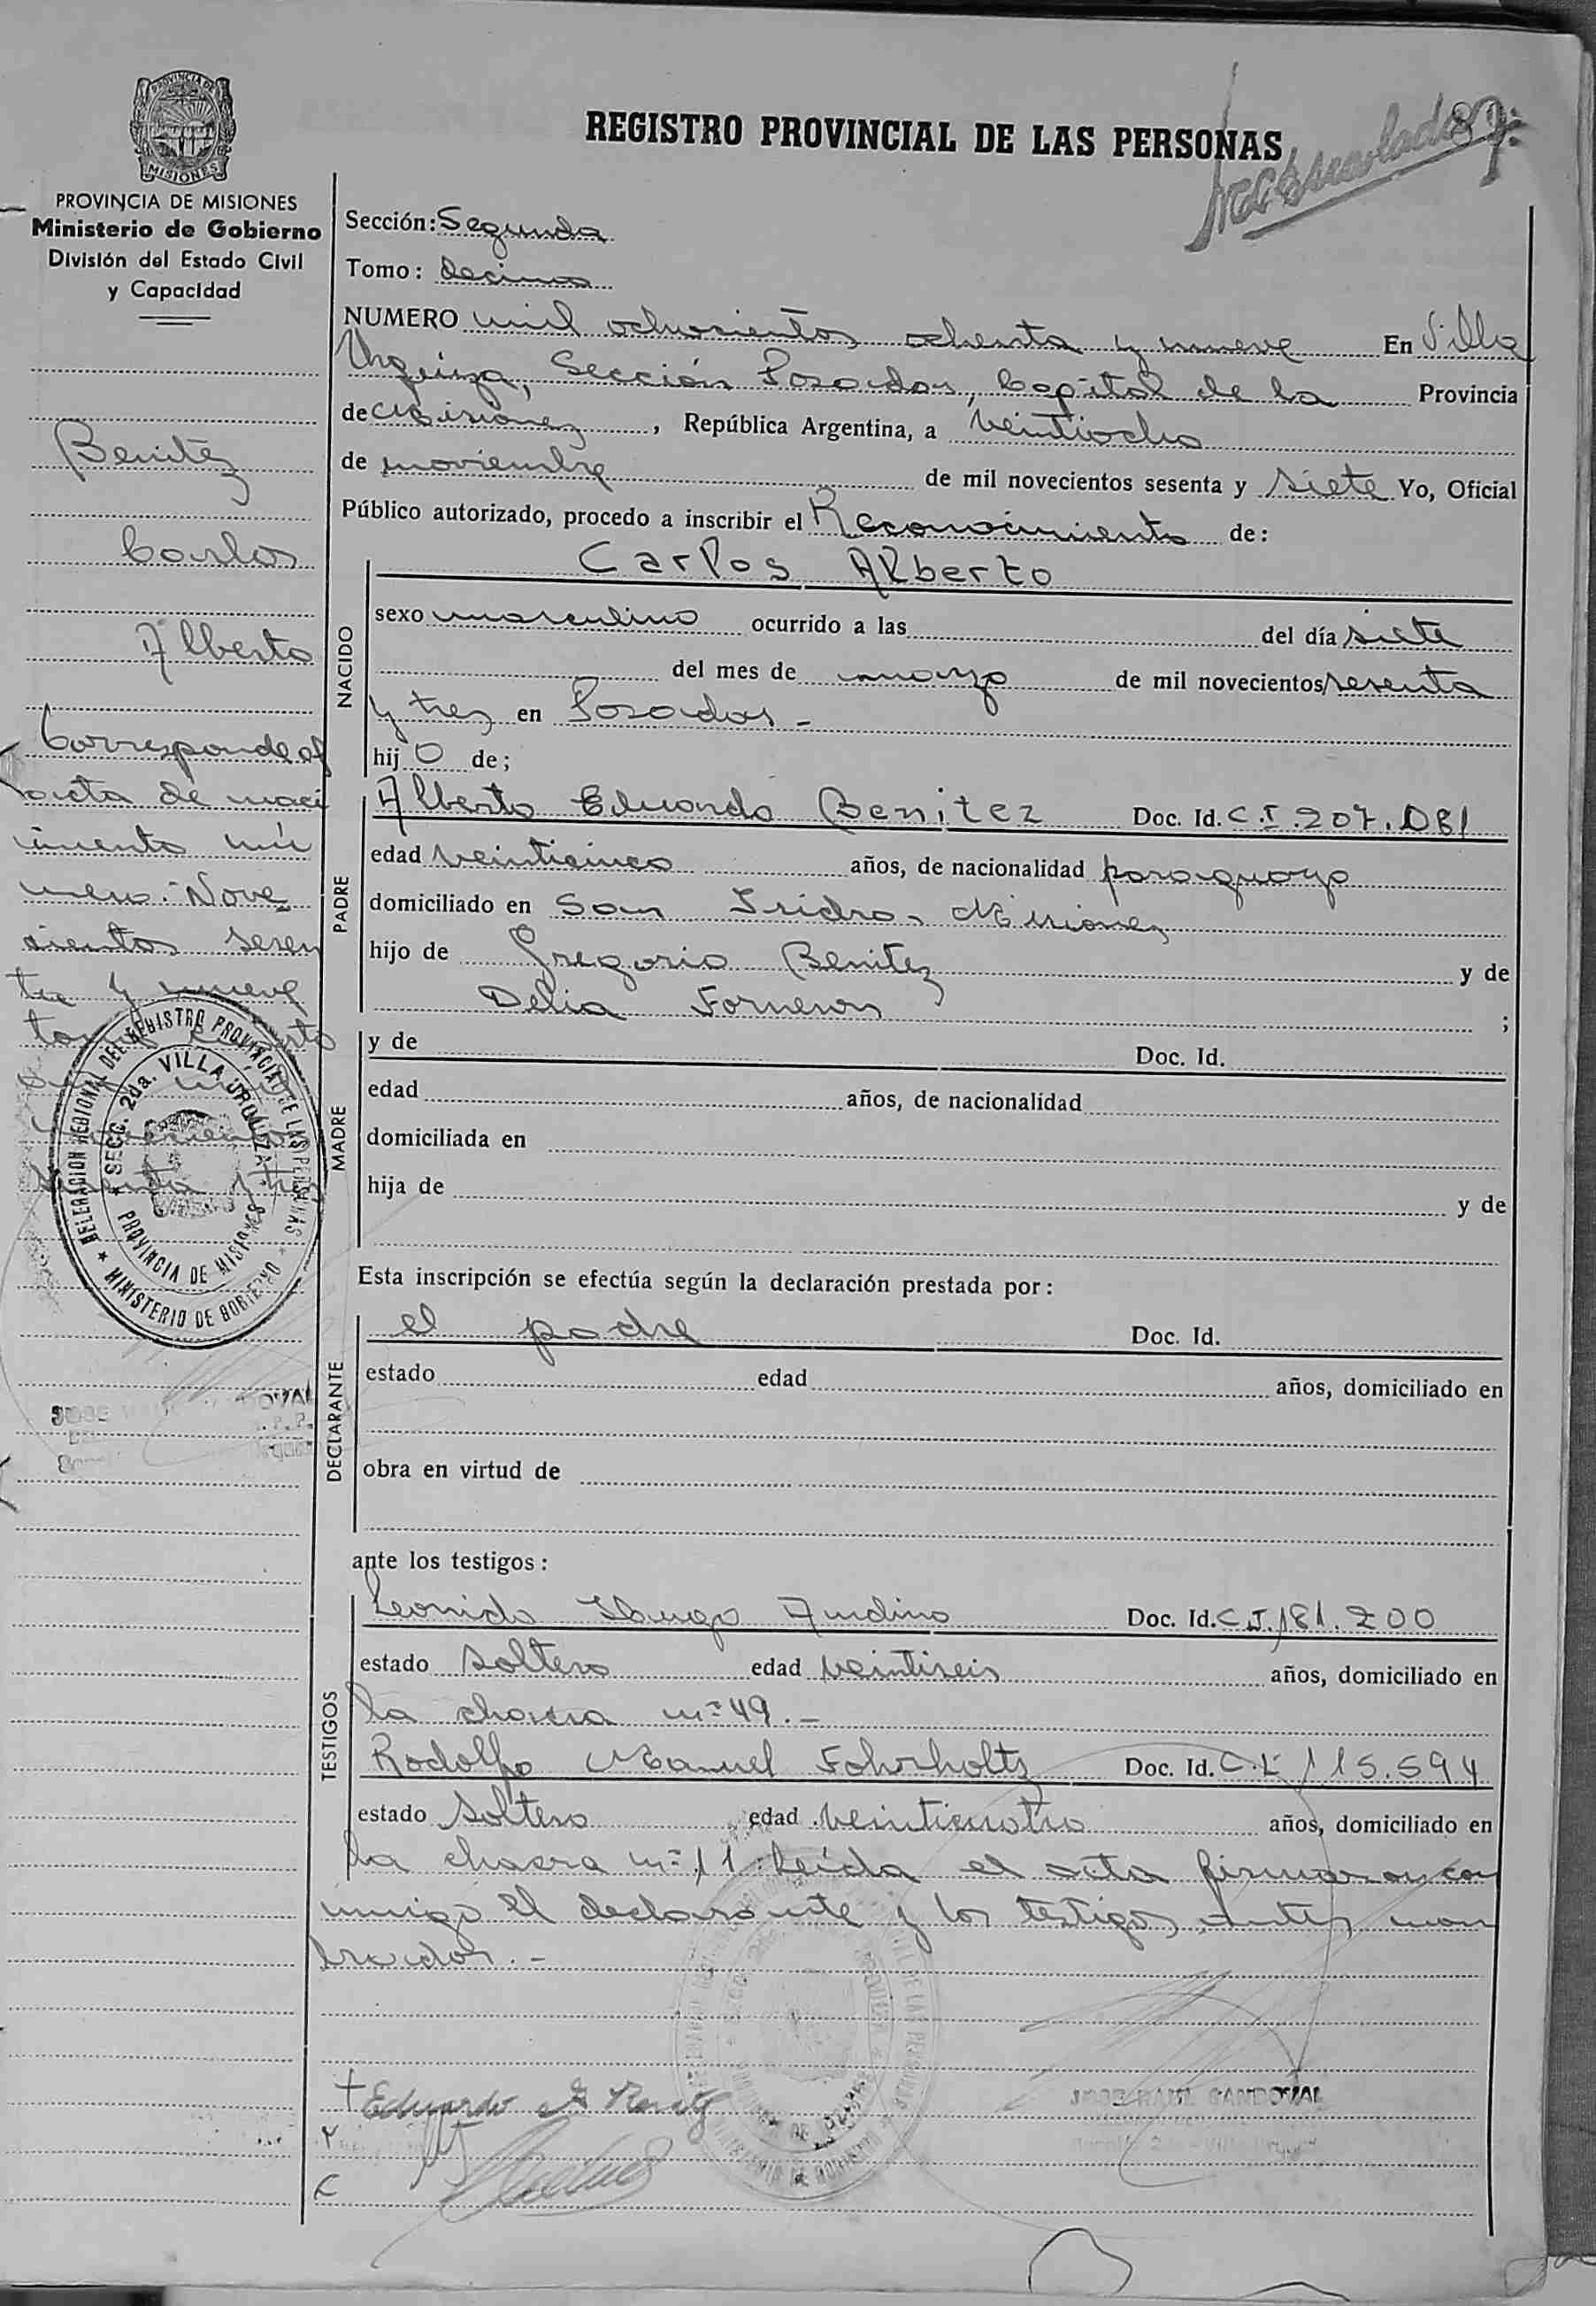 REGISTRO PROVINCIAL DE LAS PERSONAS
89
PROVINCIA DE
MISIONES
PROVINCIA DE MISIONES
Ministerio de Gobierno
División del Estado Civil
y Capacidad
Benitez
Carlos
Alberto
Corresponde al
acta de naci
miento nú
mero: Nove
cientos sesen
ta y nueve
DELEGACION REGIONAL DEL REGISTRO PROVINCIAL DE LAS PERSONAS
SECC. 2da. VILLA URQUIZA
PROVINCIA DE MISIONES
MINISTERIO DE GOBIERNO
Sección: Segunda
Tomo: Decimo
NUMERO mil ochocientos ochenta y nueve En Villa
Urquiza, Sección Posadas, Capital de la Provincia
de Misiones, República Argentina, a veintiocho
de noviembre de mil novecientos sesenta y siete Yo, Oficial
Público autorizado, procedo a inscribir el Reconocimiento de:
NACIDO
Carlos Alberto
sexo masculino ocurrido a las del día siete
del mes de de mil novecientos sesenta
y tres en Posadas -
hijo de;
PADRE
Alberto Eduardo Benitez Doc. Id. C.I. 207.081
edad veinticinco años, de nacionalidad paraguayo
domiciliado en San Isidro, Misiones
hijo de Gregorio Benitez y de
Delia Forneron ;
MADRE
y de Doc. Id.
edad años, de nacionalidad
domiciliada en
hija de y de
Esta inscripción se efectúa según la declaración prestada por:
DECLARANTE
el padre Doc. Id.
estado edad años, domiciliado en
obra en virtud de
ante los testigos:
TESTIGOS
Leonido Hugo Doc. Id. C.I. 181.200
estado soltero edad veintiseis años, domiciliado en
la chacra nº 49.-
Rodolfo Manuel Doc. Id. C.I. 115.594
estado soltero edad veinticuatro años, domiciliado en
la chacra nº 11. Leída el acta firmaron con
migo el declarante y los testigos antes nom
brados.-
Eduardo
JOSE RAUL SANDOVAL